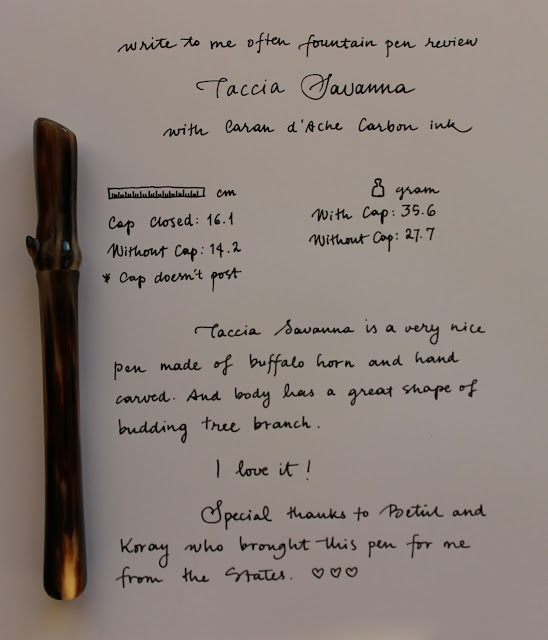 write to me often fountain pen review
Taccia Savanna
with Caran d'Ache Carbon ink
cm
Cap closed: 16.1
Without Cap: 14.2
* Cap doesn't post
gram
With Cap: 35.6
Without Cap: 27.7
Taccia Savanna is a very nice
pen made of buffalo horn and hand
carved. And body has a great shape of
budding tree branch.
I love it!
Special thanks to and
Koray who brought this pen for me
from the States. ♡♡♡